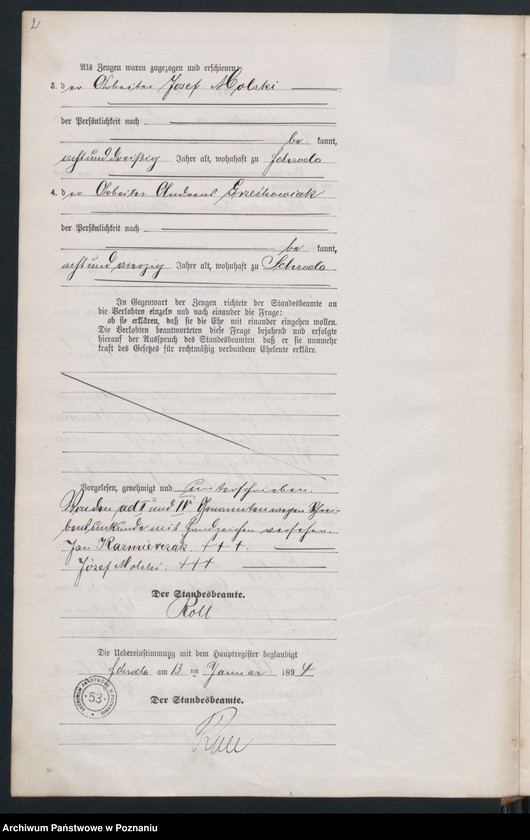 2
Als Zeugen waren zugezogen und erschienen:
3. der Arbeiter Josef Molski
der Persönlichkeit nach
be kannt,
achtunddreißig Jahre alt, wohnhaft zu Schroda
4. der Arbeiter Andreas Grześkowiak
der Persönlichkeit nach
be kannt,
achtundvierzig Jahre alt, wohnhaft zu Schroda
In Gegenwart der Zeugen richtete der Standesbeamte an
die Verlobten einzeln und nach einander die Frage:
ob sie erklären, daß sie die Ehe mit einander eingehen wollen.
Die Verlobten beantworteten diese Frage bejahend und erfolgte
hierauf der Ausspruch des Standesbeamten daß er sie nunmehr
kraft des Gesetzes für rechtmäßig verbundene Eheleute erkläre.
Vorgelesen, genehmigt und unterschrieben.
Von den ad I und IV Genannten wegen Schrei-
bensunkunde mit Handzeichen versehen.
Jan Kazmierczak. +++.
Józef Molski. +++
Der Standesbeamte.
Roll
Die Uebereinstimmung mit dem Hauptregister beglaubigt
Schroda am 13 ten Januar 1894
ARCHIWUM PAŃSTWOWE W POZNANIU
53
Der Standesbeamte.
Roll
Archiwum Państwowe w Poznaniu